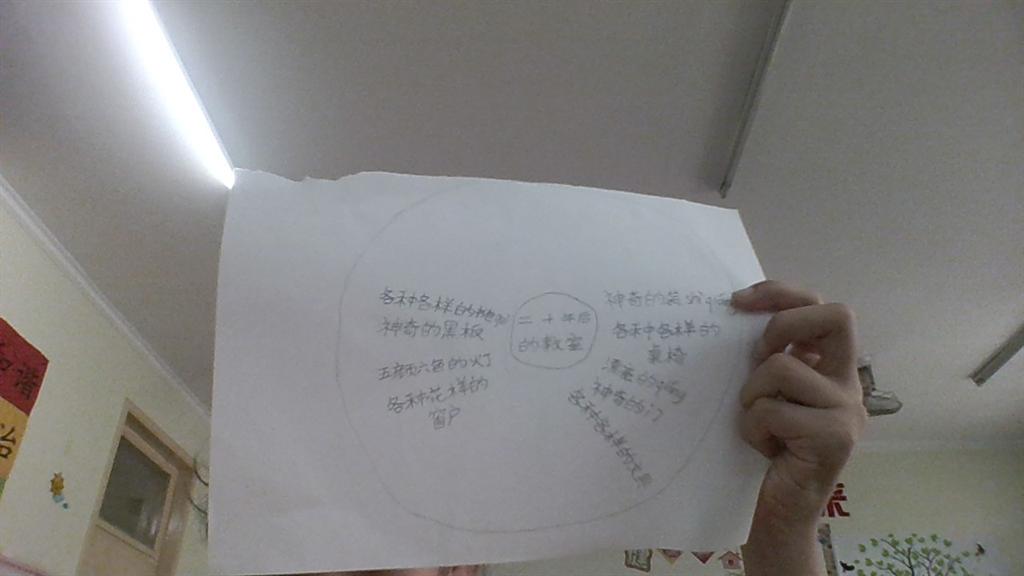 二十年后
的教室
各种各样的
神奇的黑板
五颜六色的灯
各种花样的
窗户
神奇的
各种各样的
桌椅
漂亮的
神奇的门
各种各样的文具
和谐